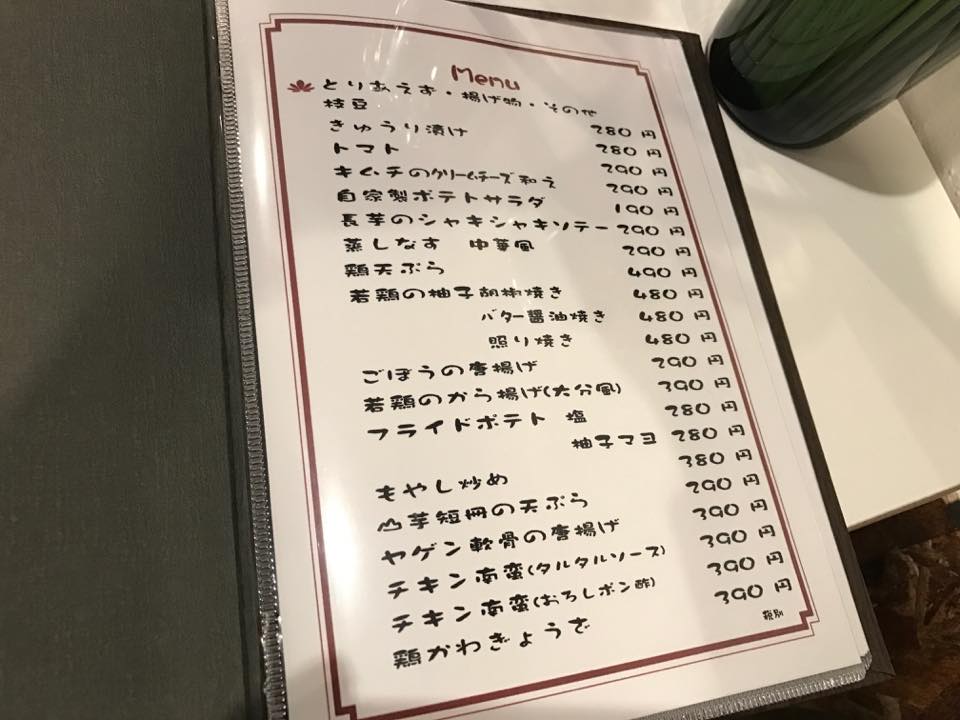 Menu
とりあえず・揚げ物・その他
枝豆 280 円
きゅうり漬け 280 円
トマト 290 円
キムチのクリームチーズ和え 290 円
自家製ポテトサラダ 190 円
長芋のシャキシャキソテー 290 円
蒸しなす 中華風 290 円
鶏天ぷら 490 円
若鶏の柚子胡椒焼き 480 円
バター醤油焼き 480 円
照り焼き 480 円
ごぼうの唐揚げ 290 円
若鶏のから揚げ(大分風) 390 円
フライドポテト 塩 280 円
柚子マヨ 280 円
もやし炒め 380 円
山芋短冊の天ぷら 290 円
ヤゲン軟骨の唐揚げ 390 円
チキン南蛮(タルタルソース) 390 円
チキン南蛮(おろしポン酢) 390 円
鶏かわぎょうざ 390 円
税別